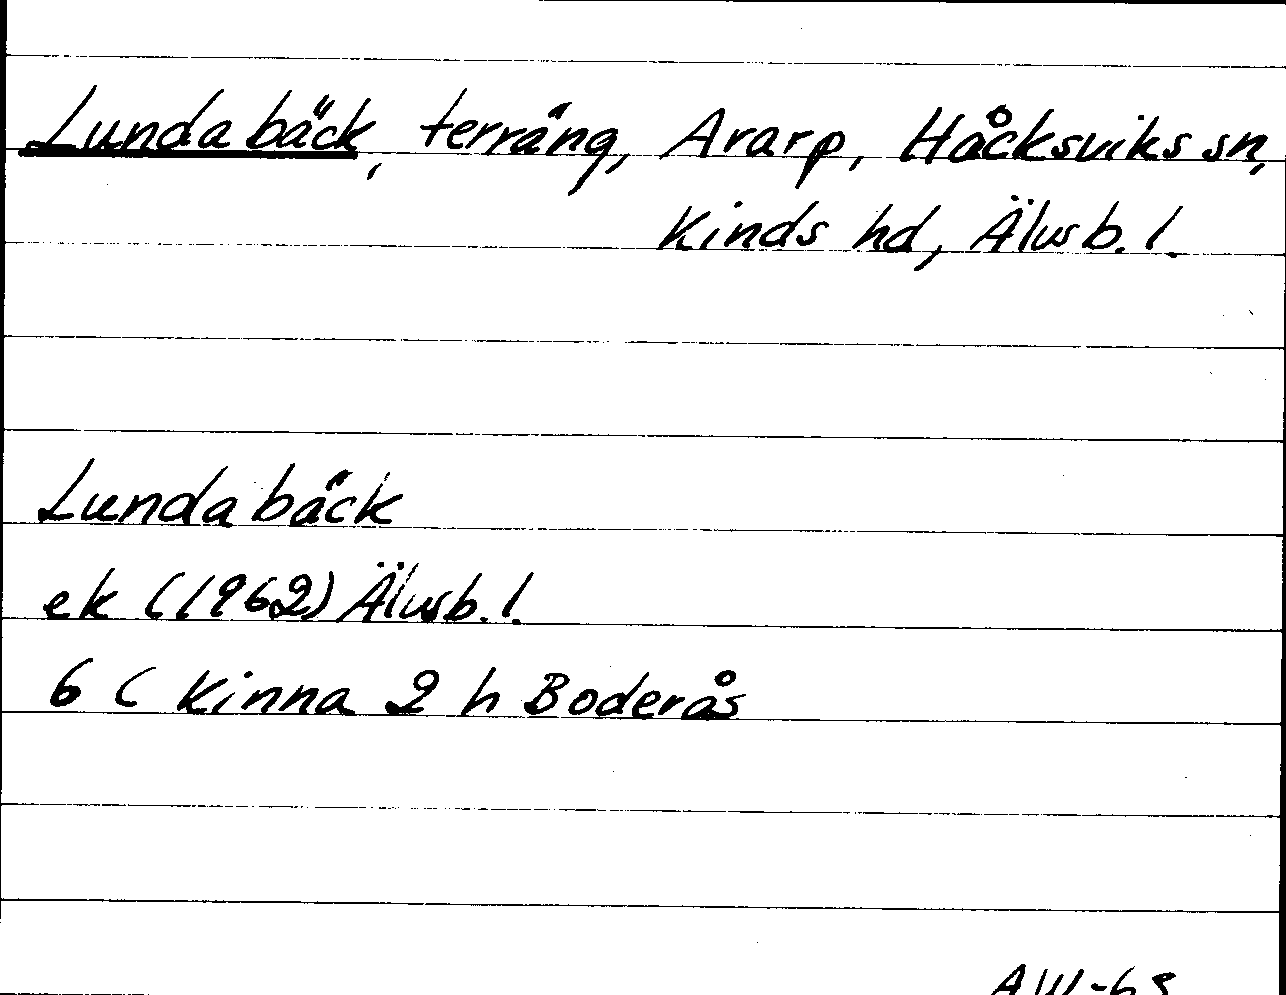 Lundabäck, terräng, Ararp, Håcksviks sn,
Kinds hd, Älvsb. l.
Lundabäck
ek (1962) Älvsb. l.
6 C Kinna 2 h Boderås